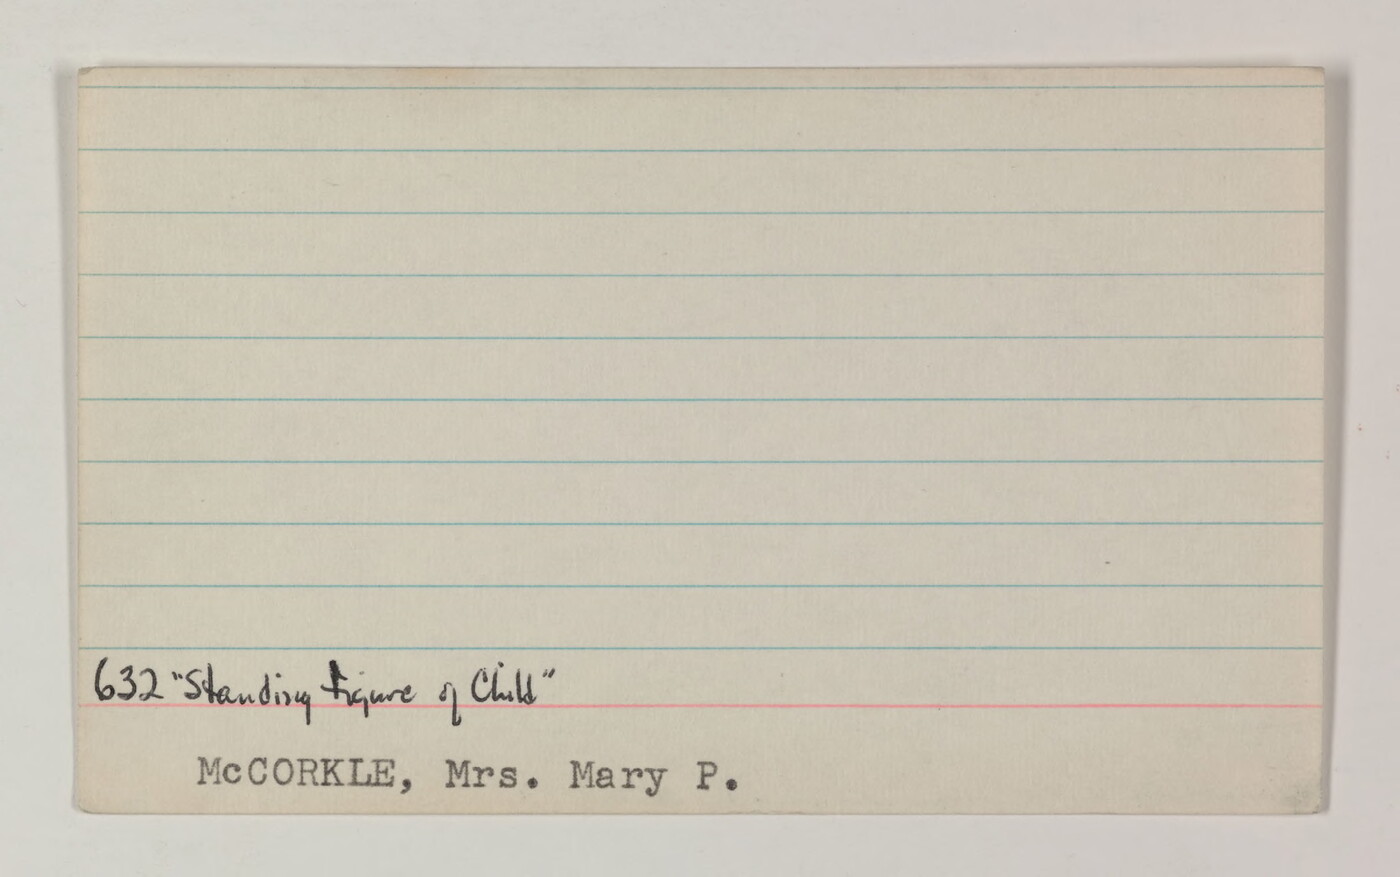 632 "Standing Figure of Child"
McCORKLE, Mrs. Mary P.